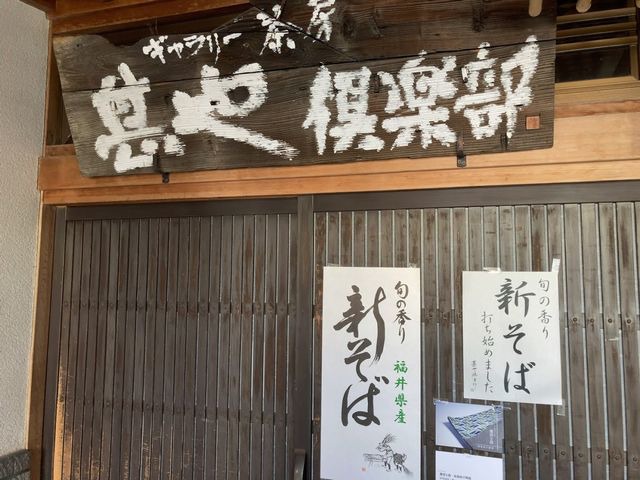 ギャラリー 茶房
甚や 倶楽部
旬の香り
新そば
福井県産
旬の香り
新そば
打ち始めました